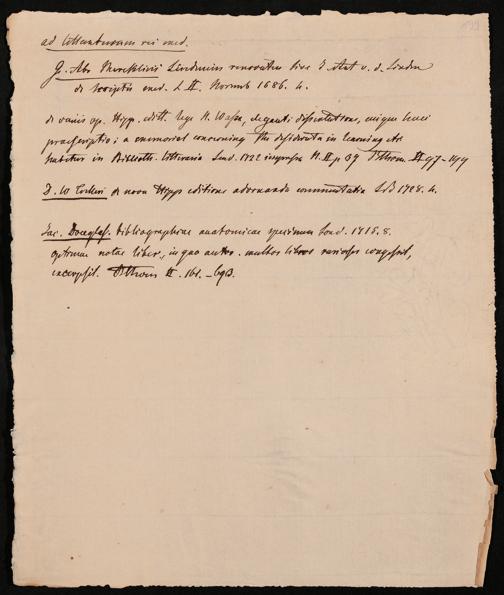 ad litteraturam rei med.
G. Abr Mercklinii Lindenius renovatus sive J. Ant v. d. Linden
de scriptis med. L II. Norimb 1686. 4.
de variis op. Hipp. editt. lege H. Wasse, eleganti dissertatione, eique huic
praescriptio; a memorial concerning the desiderata in learning etc
habetur in Biblioth litteraria Lond. 1722 impressa N. II p 39
D. W Trilleri de nova Hipp editione adornanda commentatio LB 1728. 4.
Jac. Douglas. bibliographiae anatomicae specimen Lond. 1715. 8.
optimae notae liber, in quo auctor. multos libros rariores congessit,
excerpsit. II. 161. - 693.